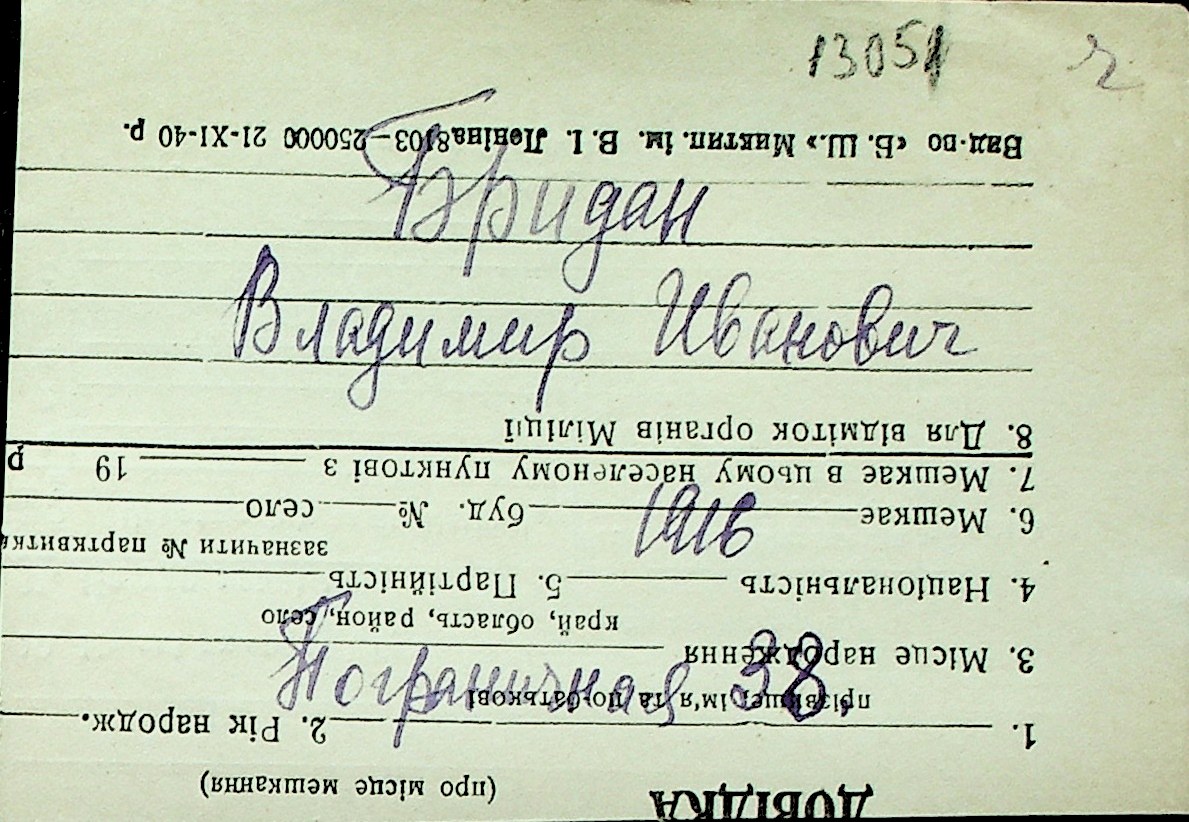 13051 г
Бридан
Владимир Иванович
1916
Пограничная 38,
ДОВІДКА
(про місце мешкання)
1. 2. Рік народж.
прізвище, ім'я та по-батькові
3. Місце народження
край, область, район, село
4. Національність 5. Партійність
зазначити № партквитка
6. Мешкає буд. № село
7. Мешкає в цьому населеному пунктові з 19 р
8. Для відміток органів Міліції
Вид-во «Б. Ш.» Миктип. ім. В. І. Леніна 8103—250000 21-XI-40 р.